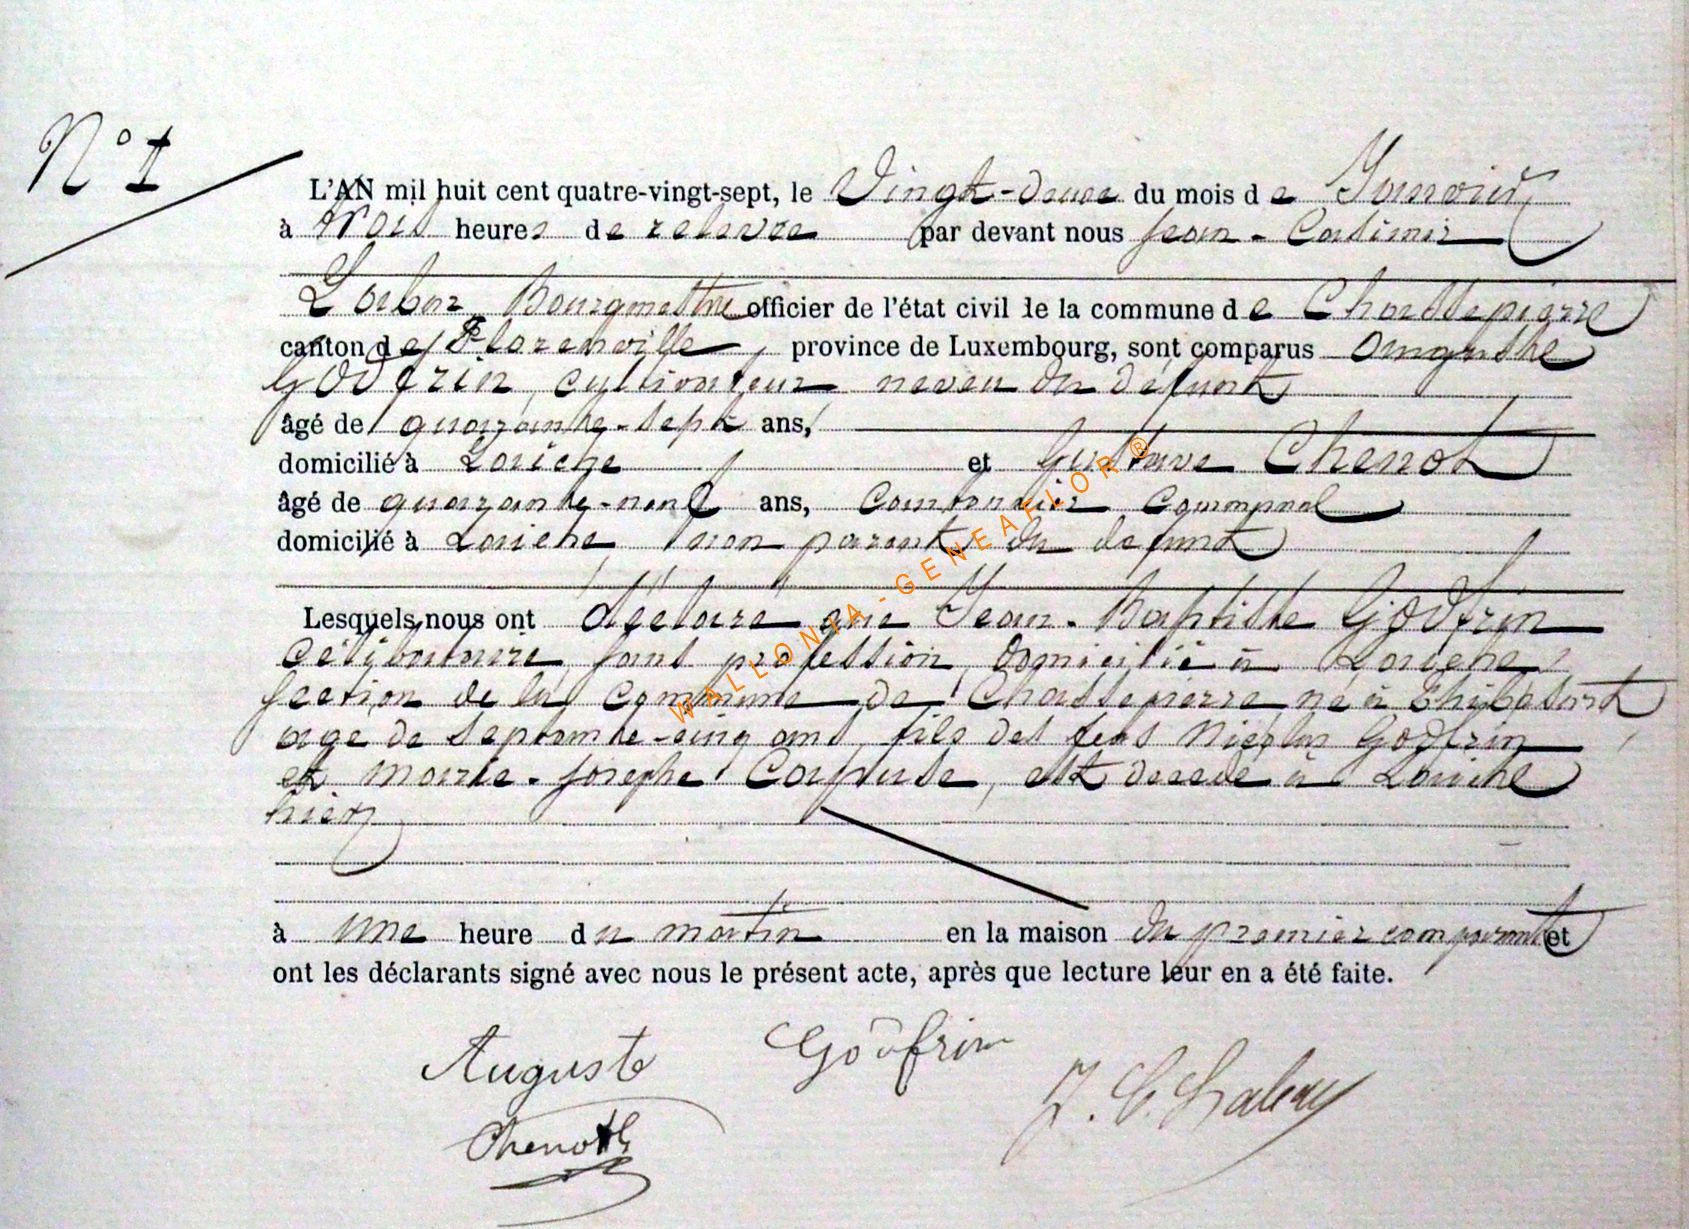 N° 1
L'AN mil huit cent quatre-vingt-sept, le Vingt-deux du mois de Janvier
à trois heures de relevée par devant nous Jean-Casimir
Labar, Bourgmestre officier de l'état civil de la commune de Chassepierre
canton de Florenville, province de Luxembourg, sont comparus Auguste
Godfrin, cultivateur neveu du défunt
âgé de quarante-sept ans,
domicilié à Laiche et Gustave Chenot
âgé de quarante-neuf ans, Cantonnier Communal
domicilié à Laiche, non parent du defunt
Lesquels nous ont déclaré que Jean-Baptiste Godfrin
Célibataire, sans profession, domicilié à Laiche,
section de la commune de Chassepierre, né à
age de septante-cinq ans, fils des feus Nicolas Godfrin
et Marie-Josephe, est decedé à Laiche
hier
à une heure du matin en la maison du premier comparant et
ont les déclarants signé avec nous le présent acte, après que lecture leur en a été faite.
Auguste Godfrin
J. C. Labar
Chenot G
WALLONIA-GENEAFLOR ®